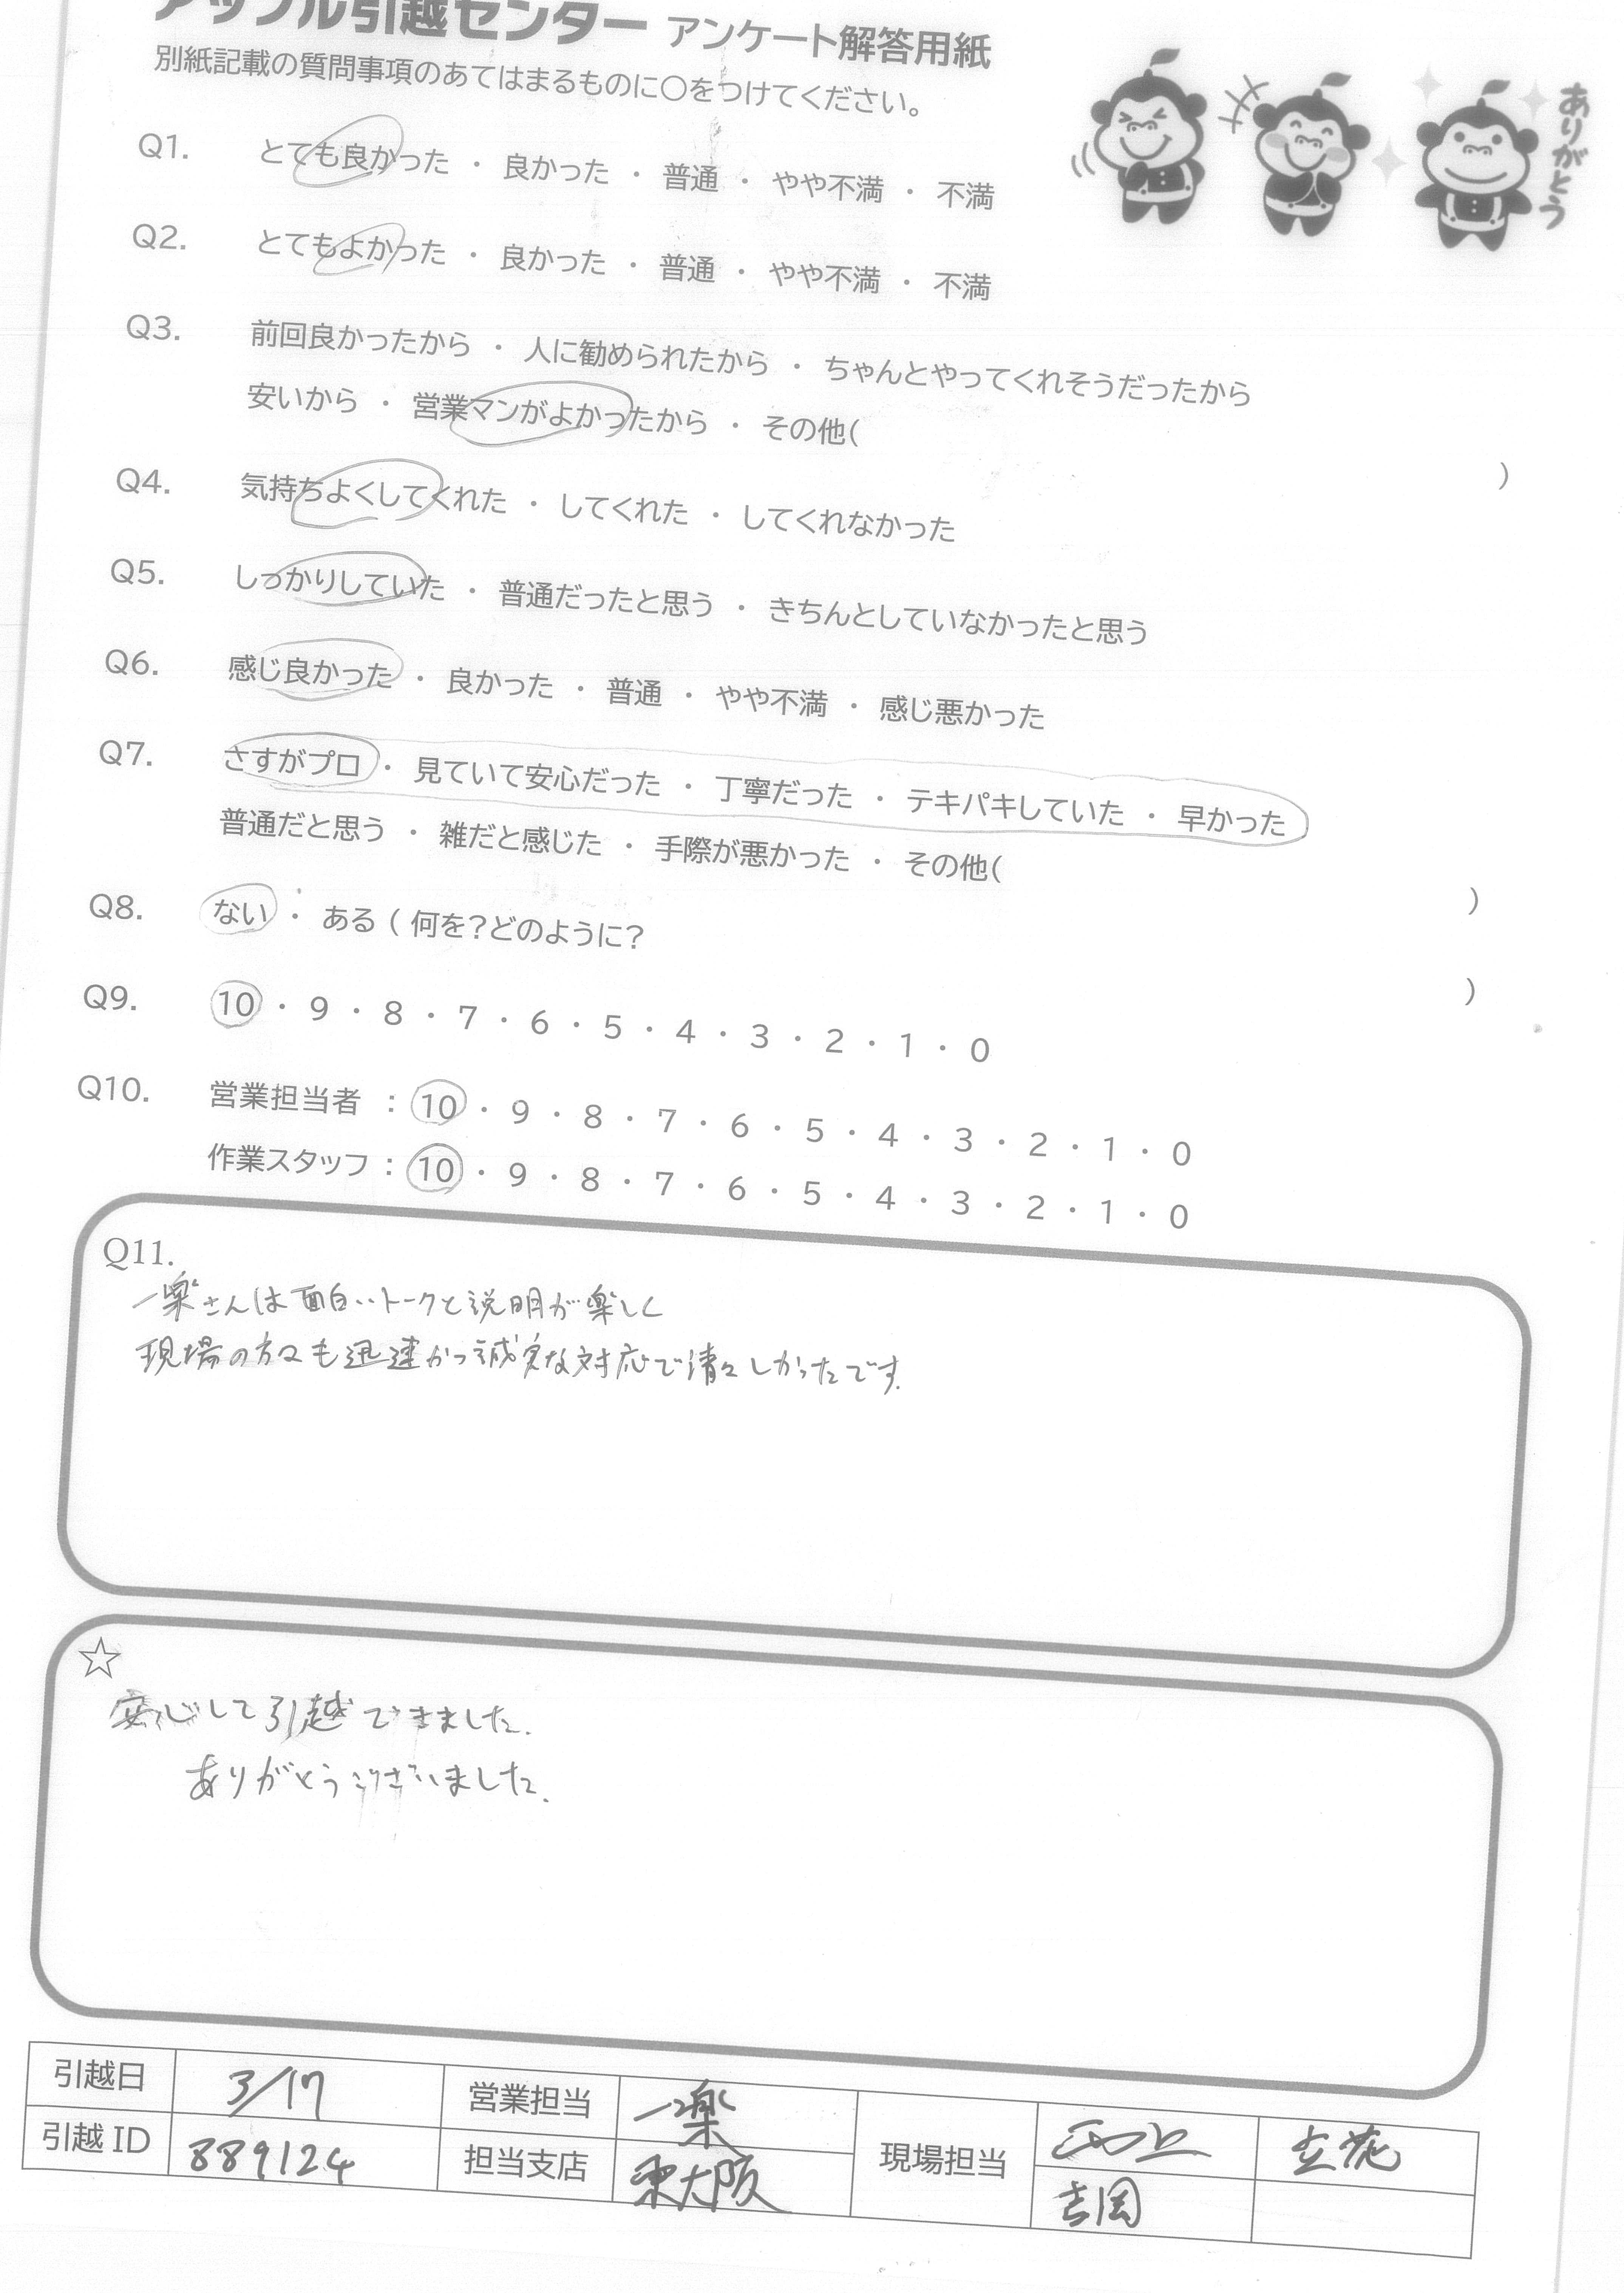 アップル引越センター アンケート解答用紙
別紙記載の質問事項のあてはまるものに〇をつけてください。
ありがとう
Q1. とても良かった ・ 良かった ・ 普通 ・ やや不満 ・ 不満
Q2. とてもよかった ・ 良かった ・ 普通 ・ やや不満 ・ 不満
Q3. 前回良かったから ・ 人に勧められたから ・ ちゃんとやってくれそうだったから
安いから ・ 営業マンがよかったから ・ その他( )
Q4. 気持ちよくしてくれた ・ してくれた ・ してくれなかった
Q5. しっかりしていた ・ 普通だったと思う ・ きちんとしていなかったと思う
Q6. 感じ良かった ・ 良かった ・ 普通 ・ やや不満 ・ 感じ悪かった
Q7. さすがプロ ・ 見ていて安心だった ・ 丁寧だった ・ テキパキしていた ・ 早かった
普通だと思う ・ 雑だと感じた ・ 手際が悪かった ・ その他( )
Q8. ない ・ ある ( 何を?どのように? )
Q9. 10 ・ 9 ・ 8 ・ 7 ・ 6 ・ 5 ・ 4 ・ 3 ・ 2 ・ 1 ・ 0
Q10. 営業担当者 : 10 ・ 9 ・ 8 ・ 7 ・ 6 ・ 5 ・ 4 ・ 3 ・ 2 ・ 1 ・ 0
作業スタッフ : 10 ・ 9 ・ 8 ・ 7 ・ 6 ・ 5 ・ 4 ・ 3 ・ 2 ・ 1 ・ 0
Q11.
一楽さんは面白いトークと説明が楽しく
現場の方々も迅速かつ誠実な対応で清々しかったです.
☆
安心して引越できました.
ありがとうございました.
引越日 3/17 営業担当 一楽 現場担当 立花
引越ID 889124 担当支店 東大阪 吉岡